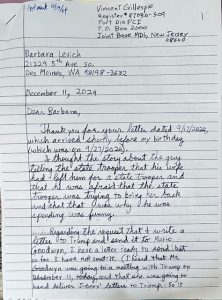 Vincent Gillespie
Register # 87098-509
Fort Dix FCI
P.O. Box 2000
Joint Base MDL, New Jersey
08640
Barbara Levich
21229 5th Ave So.
Des Moines, WA 98198-3682
December 11, 2024
Dear Barbara,
Thank you for your letter dated 9/17/2024,
which arrived shortly before my birthday
(which was on 9/27/2024).
I thought the story about the guy
telling the state trooper that his wife
had left him for a state trooper and
that he was afraid that the state
trooper was trying to bring her back
and that that was why he was
speeding was funny.
Regarding the request that I write a
letter to Trump and send it to Marie
Goodwyn, I have a letter ready to send but
so far I have not sent it. (I heard that Ms.
Goodwyn was going to a meeting with Trump on
December 11, today, and that she was going to
hand deliver J6ers' letters to Trump. So is